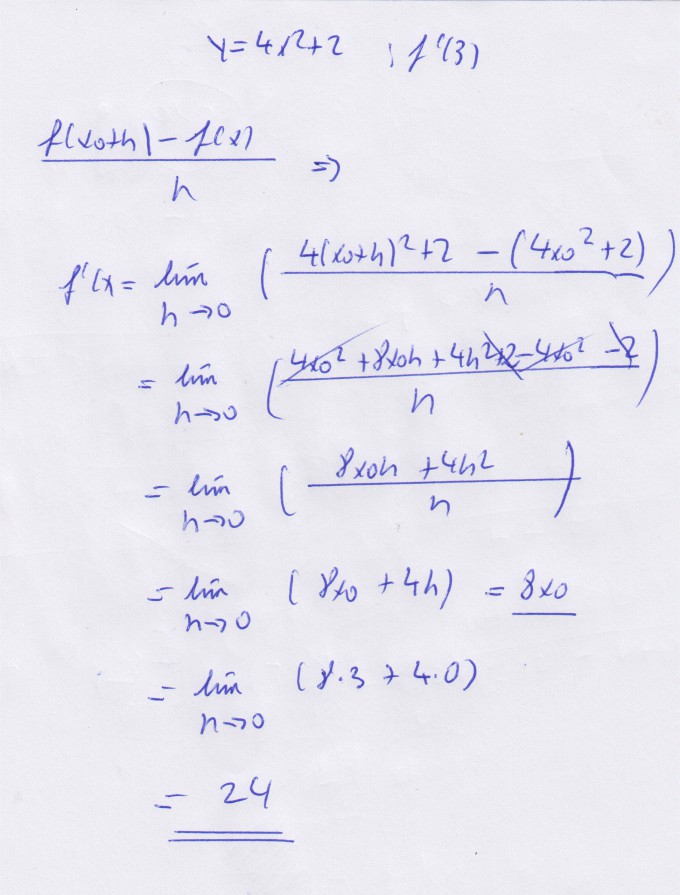 y=4x²+2 ; f'(3)
f(x0+h)-f(x) / h =>
f'(x = lim h→0 ( 4(x0+h)²+2 - (4x0²+2) / h )
= lim h→0 ( 4x0²+8x0h+4h²+2-4x0²-2 / h )
= lim h→0 ( 8x0h+4h2 / h )
= lim h→0 (8x0+4h) = 8x0
= lim h→0 (8.3+4.0)
= 24